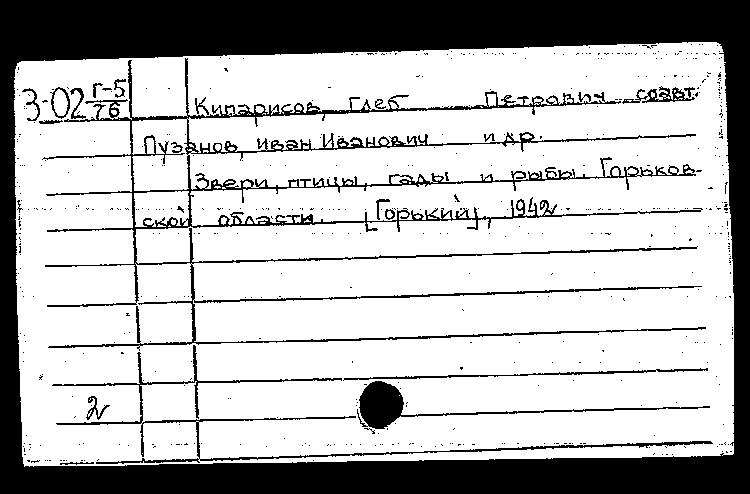 З-02 Г-5/76
Кипарисов, Глеб Петрович соавт.
Пузанов, Иван Иванович и др.
Звери, птицы, гады и рыбы Горьков-
ской области. [Горький], 1942.
2